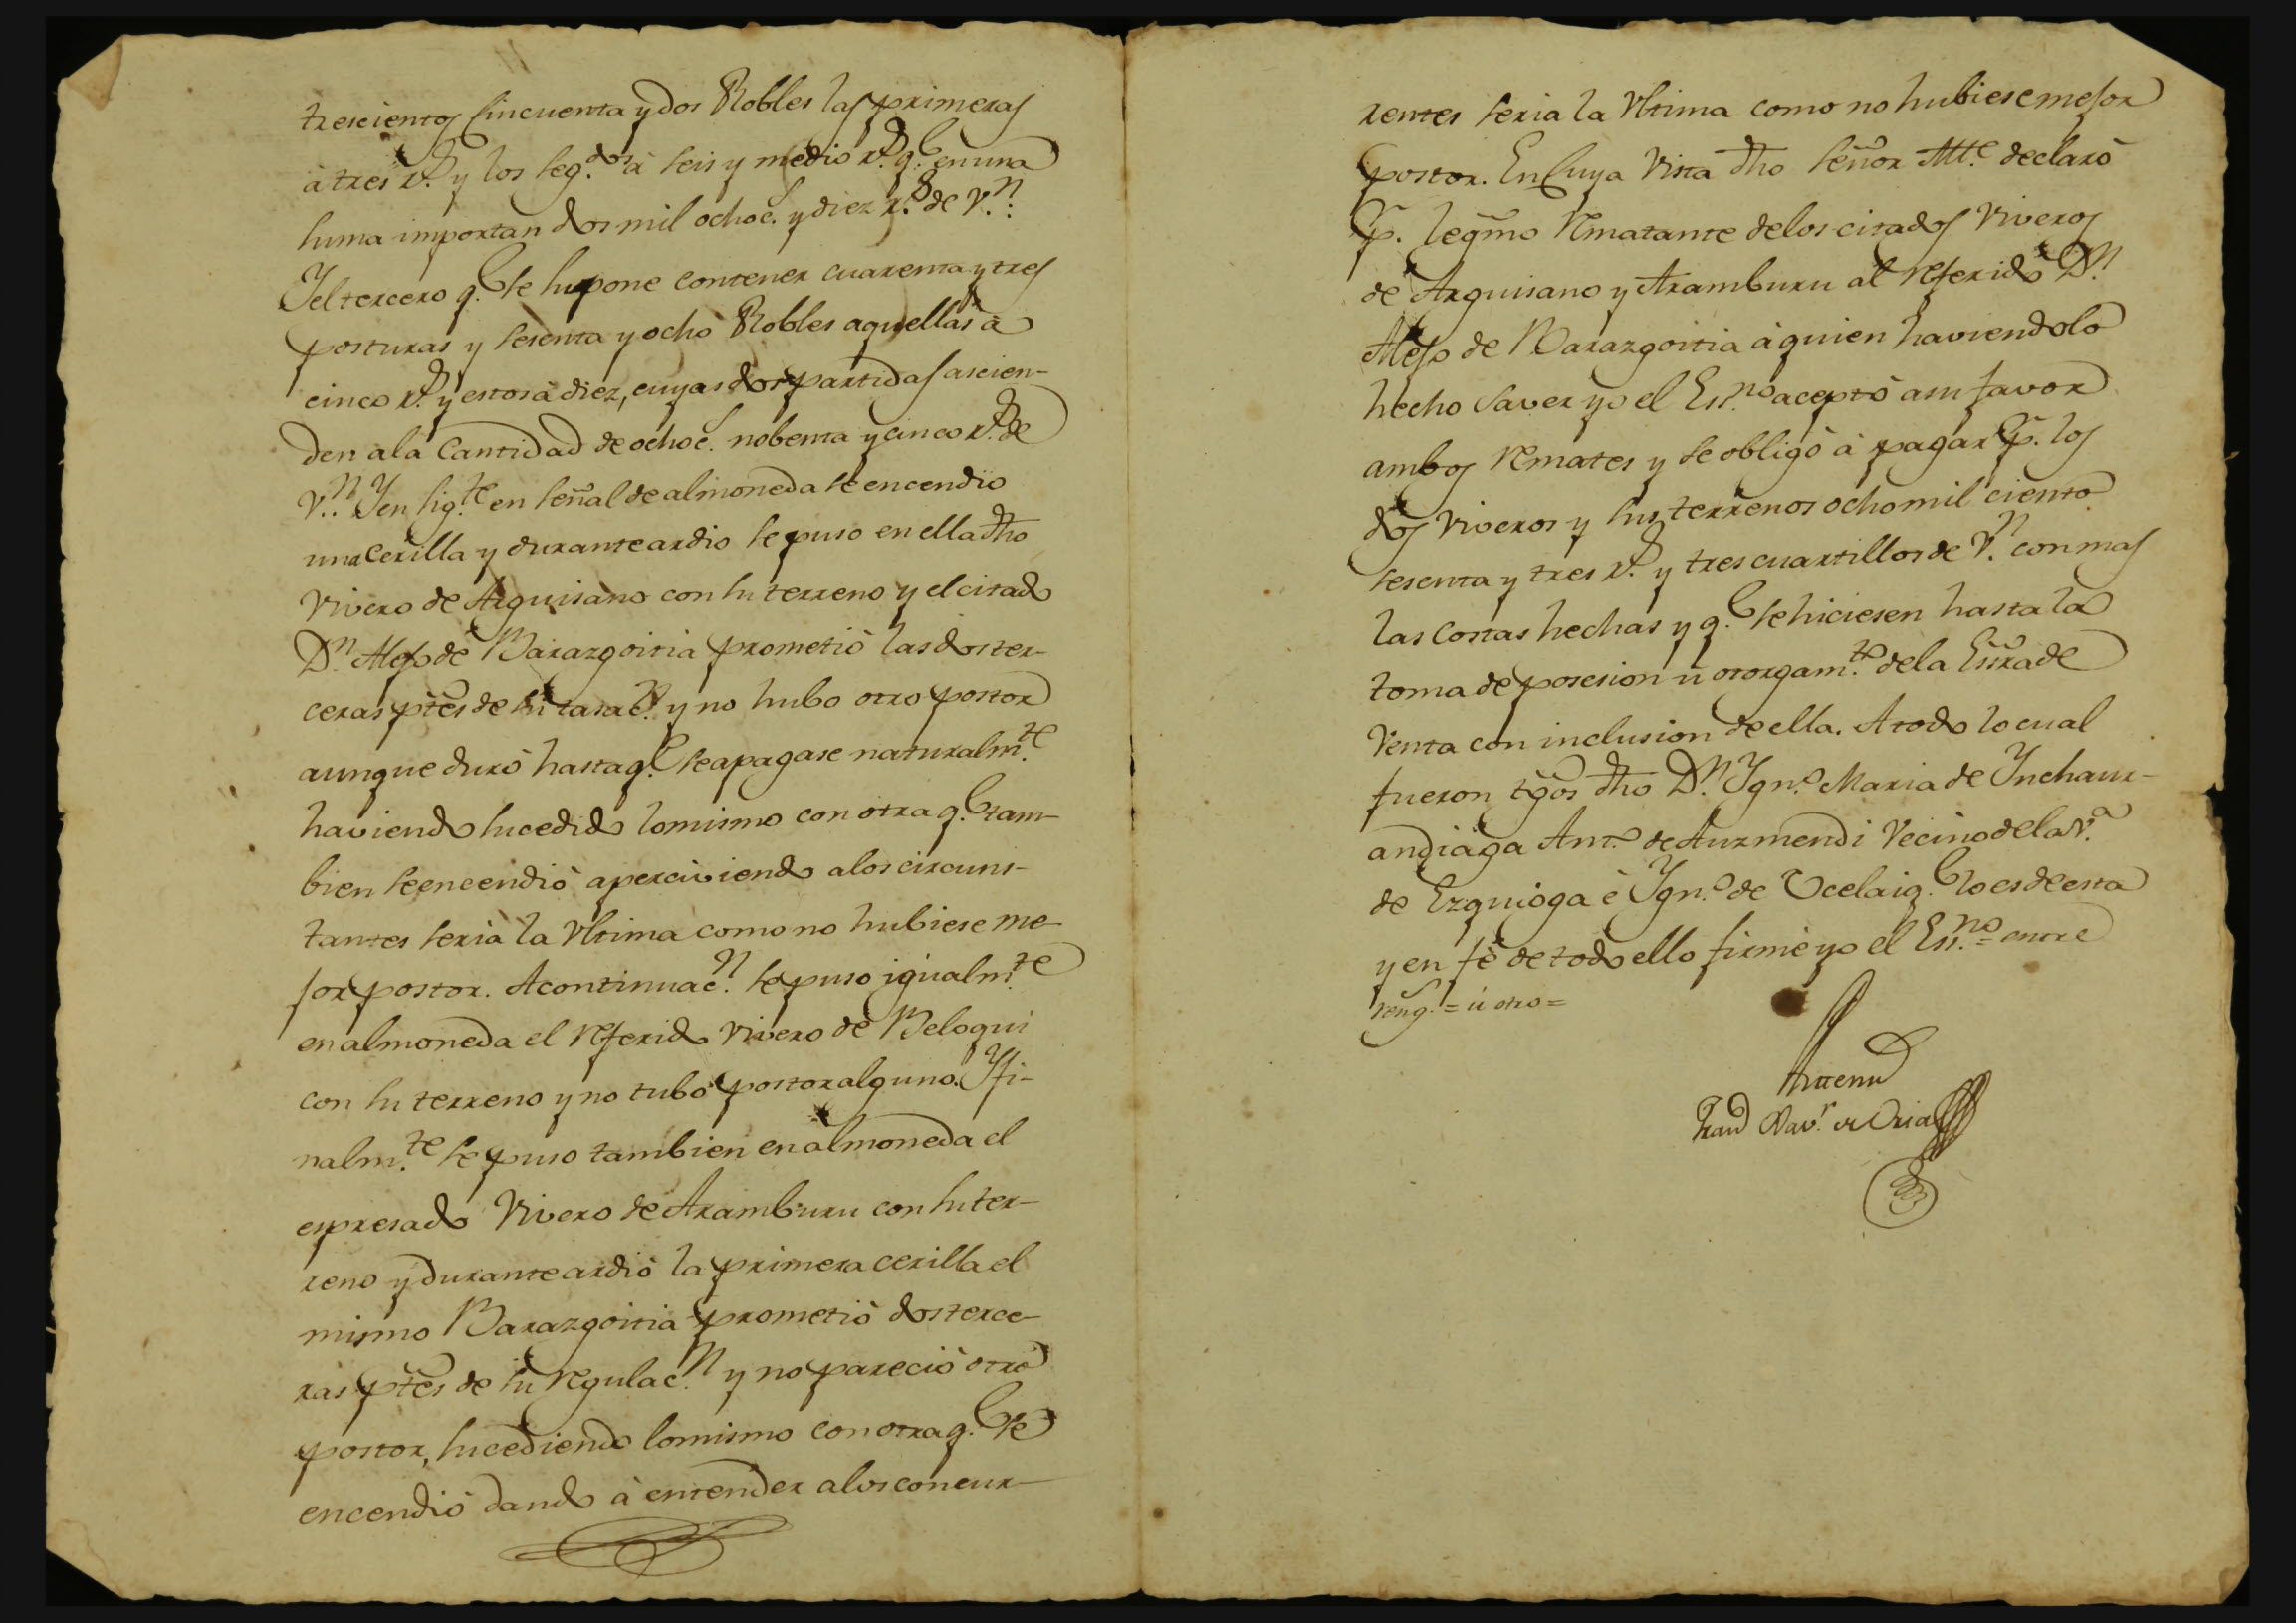 trescientos cincuenta y dos Robles las primeras
à tres r.s y los seg.dos à seis y medio r.s q.e en una
suma importan dos mil ochoc.s y diez r.s de v.n:
Y el tercero q.e se supone contener cuarenta y tres
posturas y sesenta y ocho Robles aquellas à
cinco r.s y estos à diez, cuyas dos partidas ascien-
den a la Cantidad de ochoc.s nobenta y cinco r.s de
v.n: Y en sig.te en señal de almoneda se encendio
una Cerilla y durante ardio se puso en ella dho
vivero de Arguisano con su terreno y el citado
D.n Alejo de Barazgoitia prometiò las dos ter-
ceras ptes de su tasac.n y no hubo otro postor
aunque durò hasta q.e se apagase naturalm.te
haviendo sucedido lo mismo con otra q.e tam-
bien se encendiò aperciviendo a los circuns-
tantes seria la Vltima como no hubiese me-
jor postor. A continuac.n se puso igualm.te
en almoneda el referido vivero de Beloqui
con su terreno y no tubo postor alguno. Y fi-
nalm.te se puso tambien en almoneda el
espresado Vivero de Aramburu con su ter-
reno y durante ardiò la primera cerilla el
mismo Barazgoitia prometiò dos terce-
ras ptes de su regulac.n y no pareciò otro
postor, sucediendo lo mismo con otra q.e se
encendiò dando à entender a los concur-
rentes seria la Vltima como no hubiese mejor
postor. En Cuya Vista dho señor Alc.e declarò
p.r legmo rematante de los citados Viveros
de Arguisano y Aramburu al referido D.n
Alejo de Barazgoitia à quien haviendolo
hecho Saver yo el Ess.no aceptò a su favor
ambos remates y se obligò à pagar p.r los
dos Viveros y sus terrenos ocho mil ciento
sesenta y tres r.s y tres cuartillos de v.n con mas
las Costas hechas y q.e se hiciesen hasta la
toma de posesion ù otorgam.to de la Essra de
Venta con inclusion de ella. A todo lo cual
fueron tgos dho D.n Ygn.o Maria de Ynchaur-
andiaga Ant.o de Aurmendi Vecino de la V.a
de Ezquioga è Ygn.o de Ucelai q.e lo es de esta
y en fè de todo ello firmè yo el Ess.no = entre
reng.s = ù otro =
Ante mi